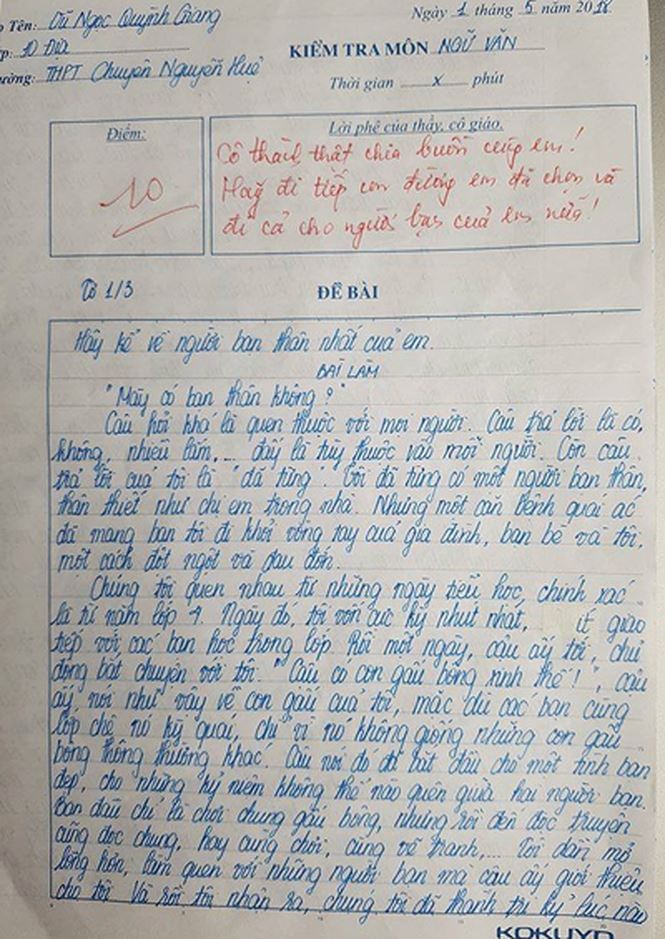 Tên: Vũ Ngọc Quỳnh Giang
Ngày 1 tháng 5 năm 2018
p: 10 Địa
KIỂM TRA MÔN NGỮ VĂN
ường: THPT Chuyên Nguyễn Huệ
Thời gian x phút
Điểm:
Lời phê của thầy, cô giáo.
10
Cô thành thật chia buồn cùng em!
Hãy đi tiếp con đường em đã chọn và
đi cả cho người bạn của em nữa!
Tổ 1/3
ĐỀ BÀI
Hãy kể về người bạn thân nhất của em.
BÀI LÀM
"Mày có bạn thân không?"
Câu hỏi khá là quen thuộc với mọi người. Câu trả lời là có,
không, nhiều lắm,... đấy là tùy thuộc vào mỗi người. Còn câu
trả lời của tôi là "đã từng". Tôi đã từng có một người bạn thân,
thân thiết như chị em trong nhà. Nhưng một căn bệnh quái ác
đã mang bạn tôi đi khỏi vòng tay của gia đình, bạn bè và tôi,
một cách đột ngột và đau đớn.
Chúng tôi quen nhau từ những ngày tiểu học, chính xác
là từ năm lớp 4. Ngày đó, tôi vốn cực kỳ nhút nhát, ít giao
tiếp với các bạn học trong lớp. Rồi một ngày, cậu ấy tới, chủ
động bắt chuyện với tôi. "Cậu có con gấu bông xinh thế!", cậu
ấy nói như vậy về con gấu của tôi, mặc dù các bạn cùng
lớp chê nó kỳ quái, chỉ vì nó không giống những con gấu
bông thông thường khác. Câu nói đó đã bắt đầu cho một tình bạn
đẹp, cho những kỷ niệm không thể nào quên giữa hai người bạn.
Ban đầu chỉ là chơi chung gấu bông, nhưng rồi đến đọc truyện
cũng đọc chung, hay cùng chơi, cùng vẽ tranh,... Tôi dần mở
lòng hơn, làm quen với những người bạn mà cậu ấy giới thiệu
cho tôi. Và rồi tôi nhận ra, chúng tôi đã thành tri kỷ lúc nào
KOKUYO